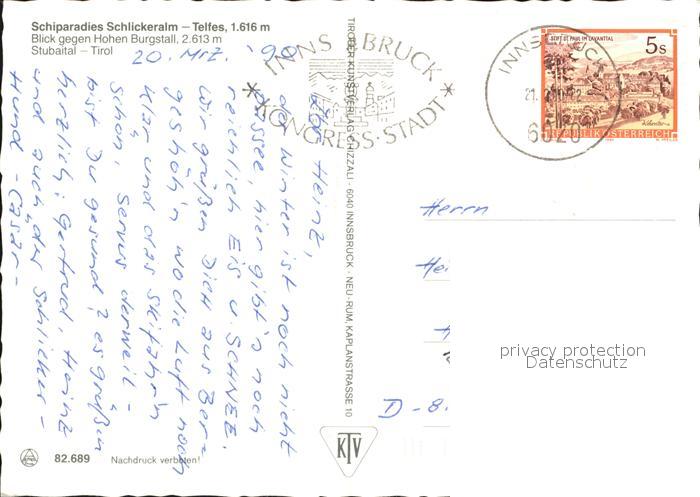 Schiparadies Schlickeralm — Telfes, 1.616 m
Blick gegen Hohen Burgstall, 2.613 m
Stubaital — Tirol
20. Mrz. '90
Heinz,
der Winter ist noch nicht
passee, hier gibt's noch
reichlich Eis u. SCHNEE.
Wir grüßen Dich aus Ber=
geshöh'n wo die Luft noch
klar und das Skifahr'n
schön, Servus derweil –
bist Du gesund? es grüßen
herzlich: Gertrud, Heinz
und auch der Schlicker –
Hund – Cäsar –
82.689 Nachdruck verboten!
TIROLER KUNSTVERLAG CHIZZALI · 6040 INNSBRUCK · NEU-RUM, KAPLANSTRASSE 10
KTV
INNSBRUCK
* KONGRESS-STADT *
INNSBRUCK
6020
STIFT ST. PAUL IM LAVANTTAL
5s
REPUBLIK ÖSTERREICH
Herrn
Hei
D - 8.
privacy protection
Datenschutz